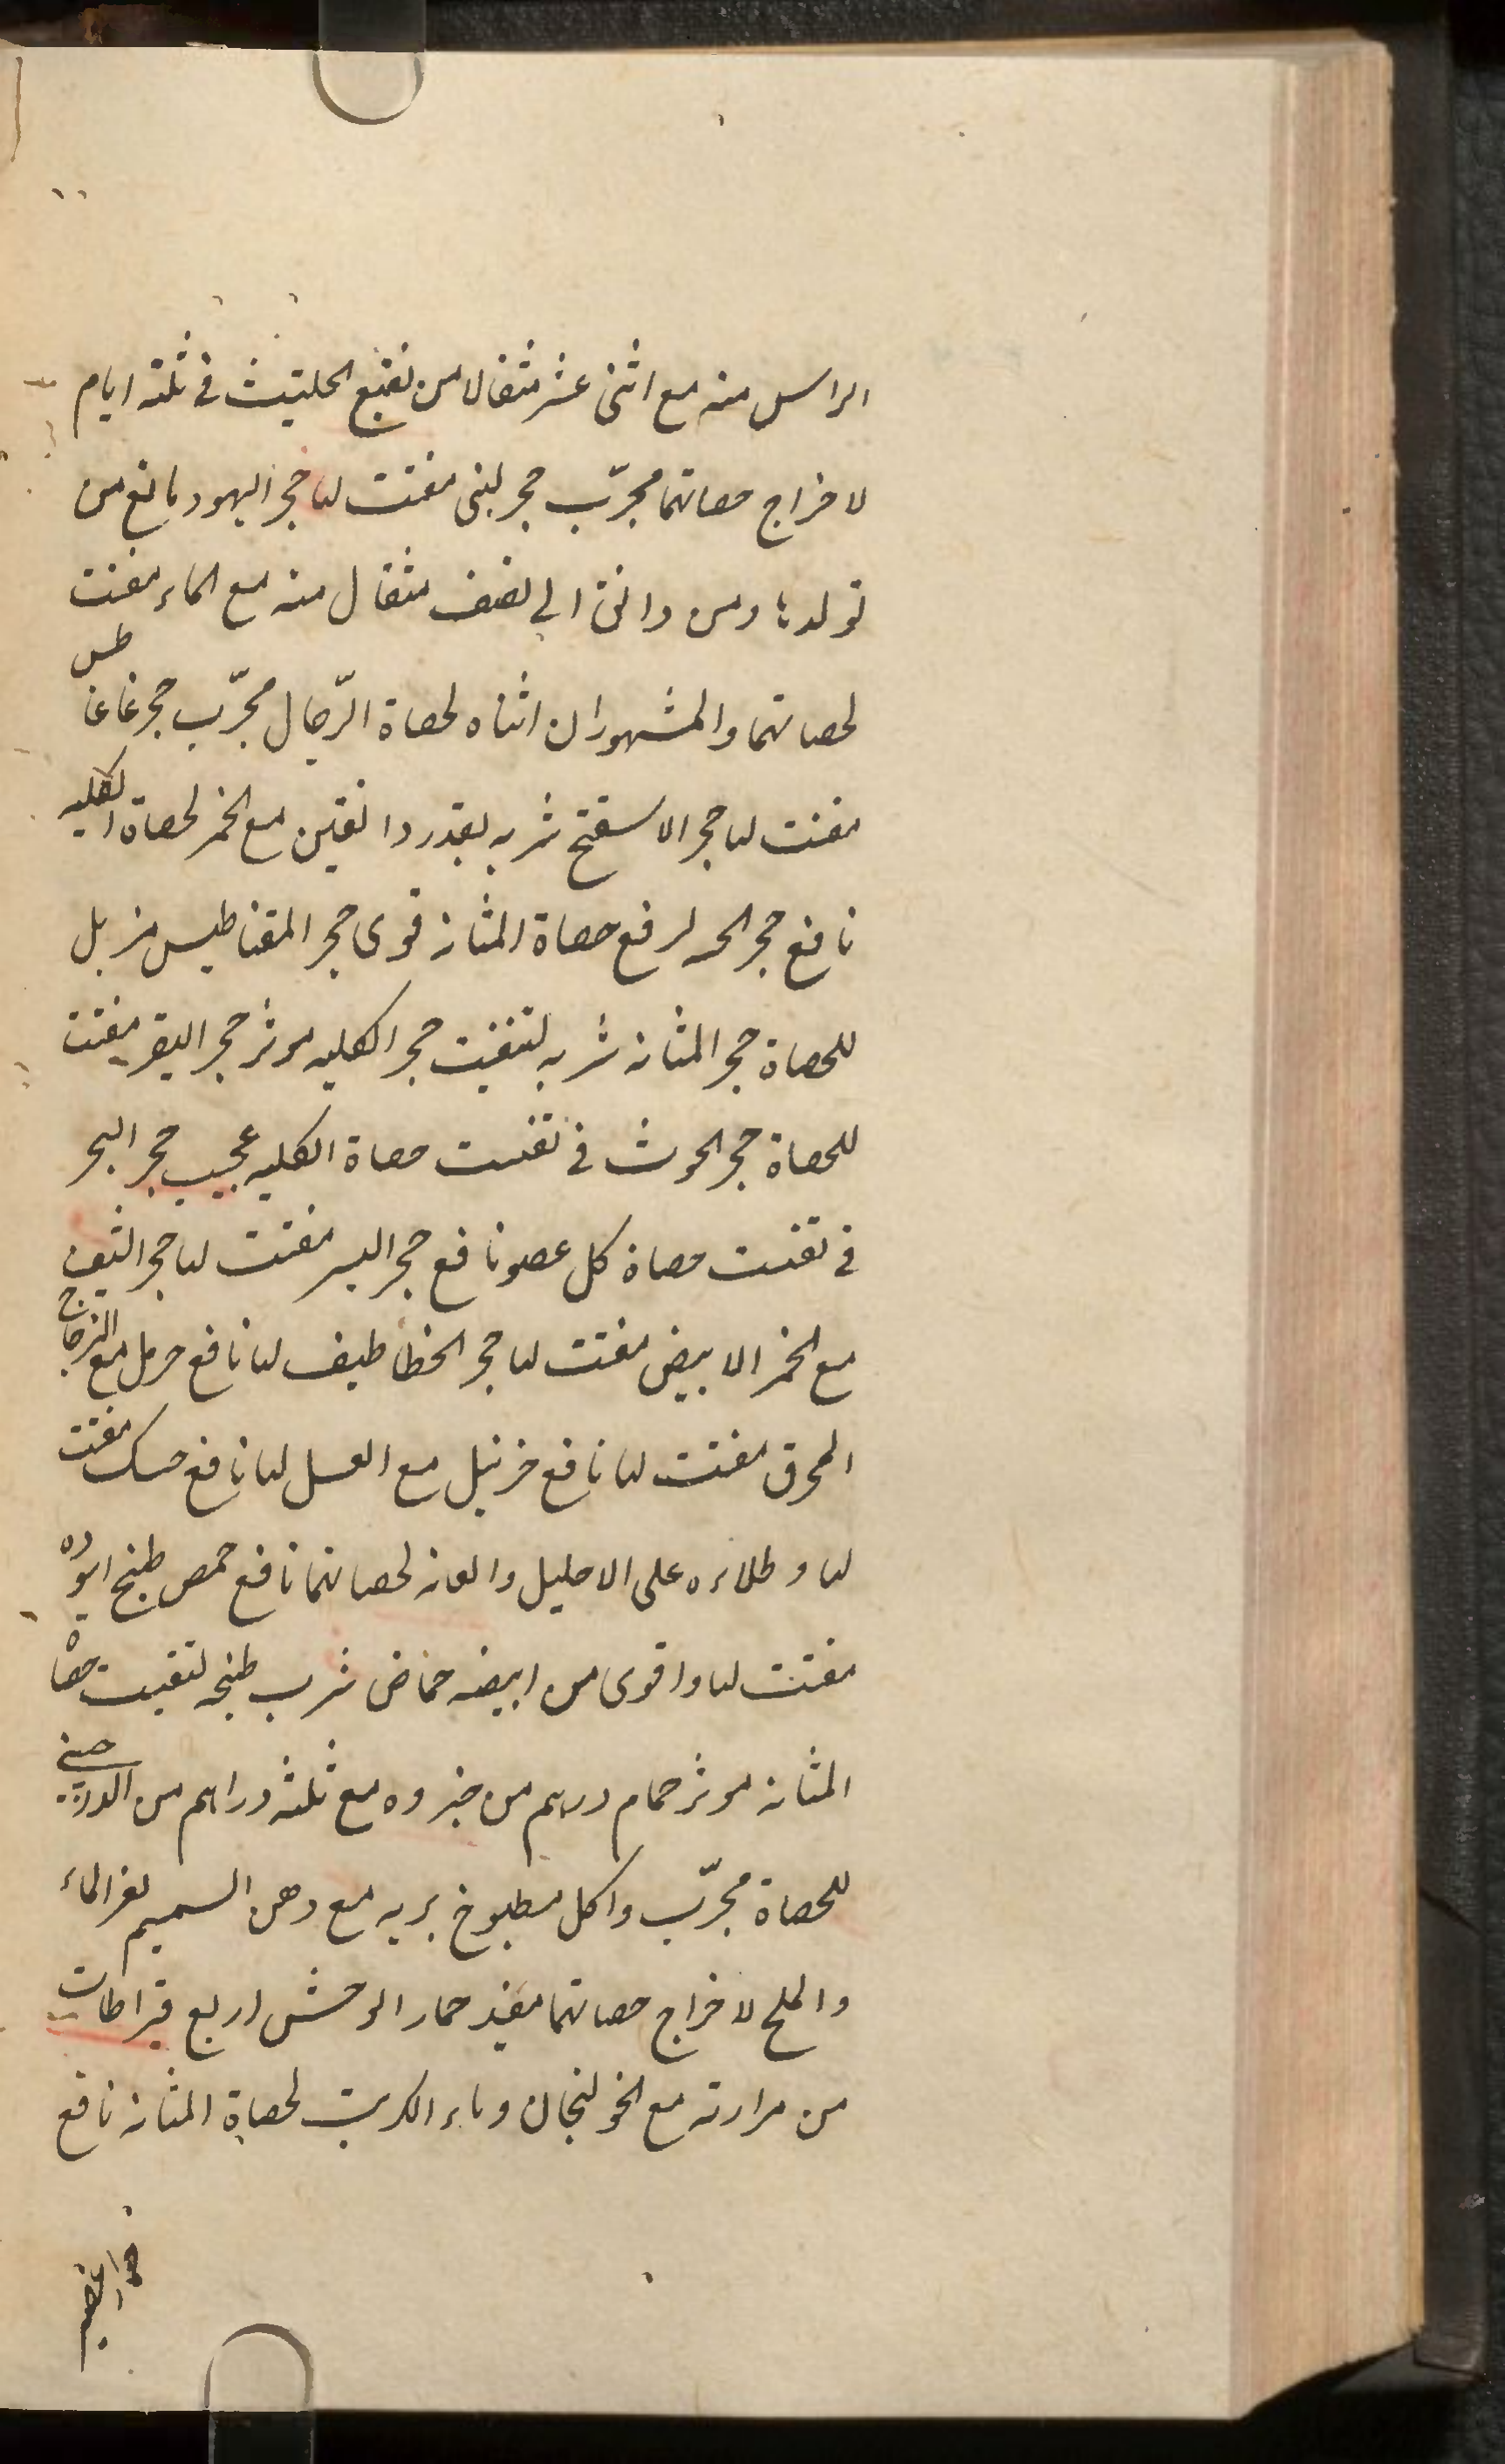 الراس منه مع اثنى عشر مثقالا من نقيع الحلتيث فى ثلثه ايام
لاخراج حصاتهما مجرّب حجر لبنى مفتت لها حجر اليهود مانع من
تولدها ومن دانق الى نصف مثقال منه مع الماء مفتت
لحصاتهما والمشهور ان انثاه لحصاة الرّجال مجرّب حجر غاغاطس
مفتت لها حجر الاسفنج شربه بقدر دانقين مع الخمر لحصاة الكليه
نافع حجر لرفع حصاة المثانه قوى حجر المقناطيس مزيل
للحصاة حجر المثانه شربه لتفتيت حجر الكليه موثر حجر البقر مفتت
للحصاة حجر الحوت فى تفتيت حصاة الكليه عجيب حجر البحر
فى تفتيت حصاة كل عضو نافع حجر مفتت لها حجر
مع الخمر الابيض مفتت لها حجر الخطاطيف لها نافع حرمل مع الزجاج
المحرق مفتت لها نافع مع العسل لها نافع حسك مفتت
لها وطلاءه على الاحليل والعانه لحصاتهما نافع حمص طبخ اسوده
مفتت لها واقوى من ابيضه حماض شرب طبخه لتفتيت حصاة
المثانه موثر حمام درهم من خروه مع ثلثه دراهم من الدارصينى
للحصاة مجرّب واكل مطبوخ بريه مع دهن السمسم بغير الماء
والملح لاخراج حصاتهما مفيد حمار الوحشى اربع قيراطات
من مرارته مع الخولنجان وماء الكبريت لحصاة المثانه نافع